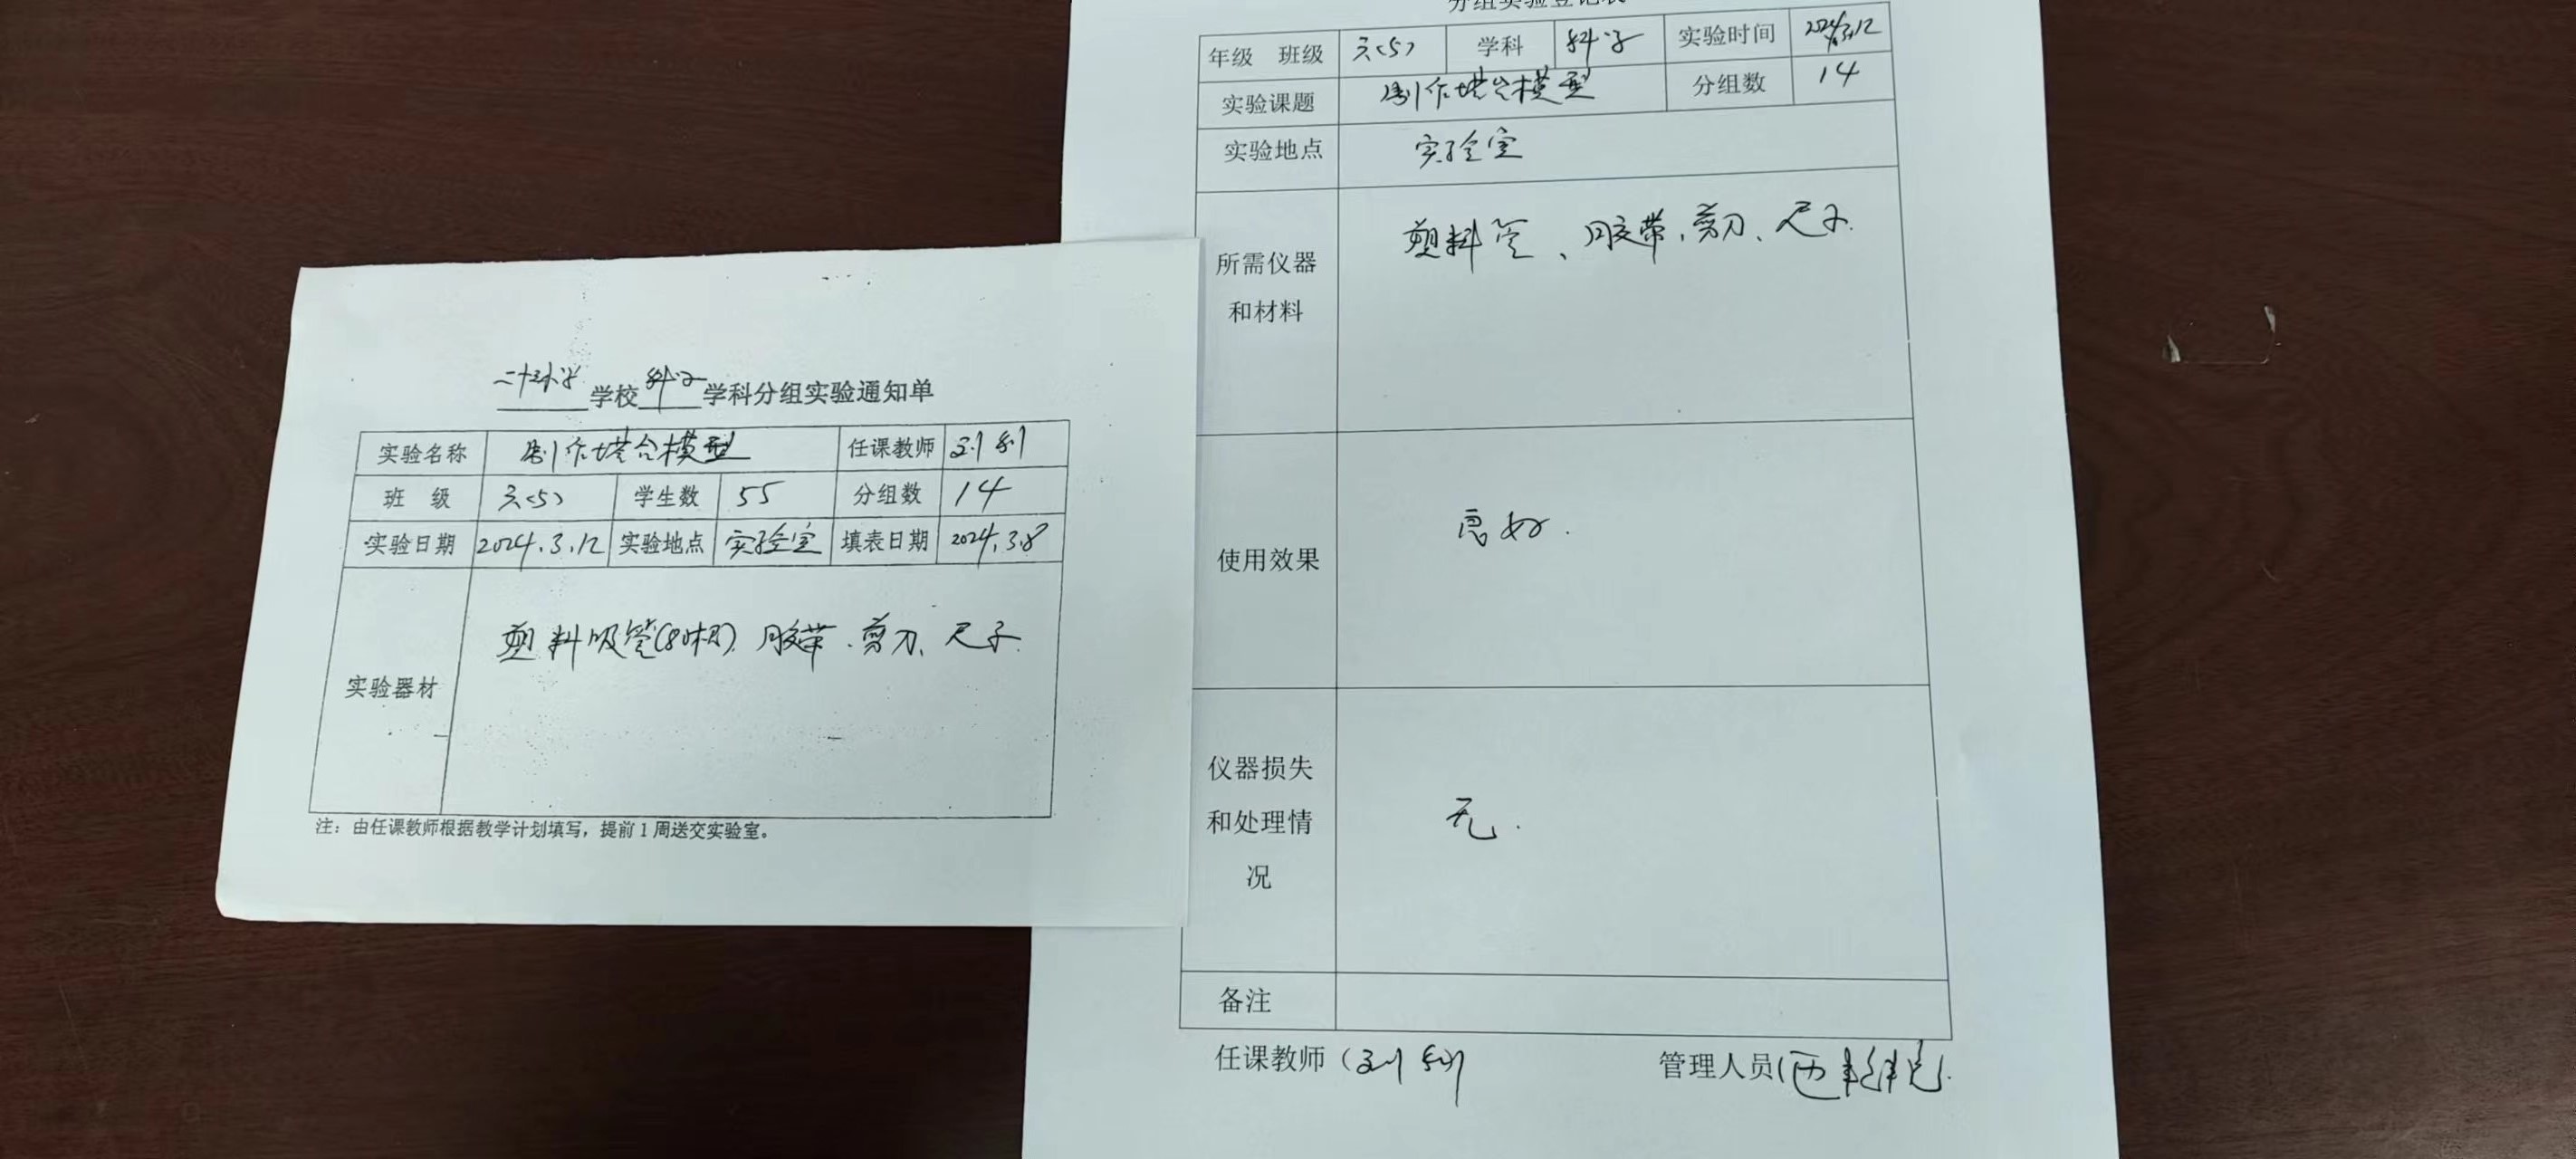 学校科学学科分组实验通知单
实验名称 制作塔台模型 任课教师
班 级 六(5) 学生数 55 分组数 14
实验日期 2024.3.12 实验地点 实验室 填表日期 2024.3.8
实验器材 塑料吸管(80根)、胶带、剪刀、尺子.
注：由任课教师根据教学计划填写，提前1周送交实验室。
分组实验登记表
年级 班级 六(5) 学科 科学 实验时间 2024.3.12
实验课题 制作塔台模型 分组数 14
实验地点 实验室
所需仪器和材料 塑料管、胶带、剪刀、尺子.
使用效果 良好.
仪器损失和处理情况 无.
备注
任课教师（ 管理人员（